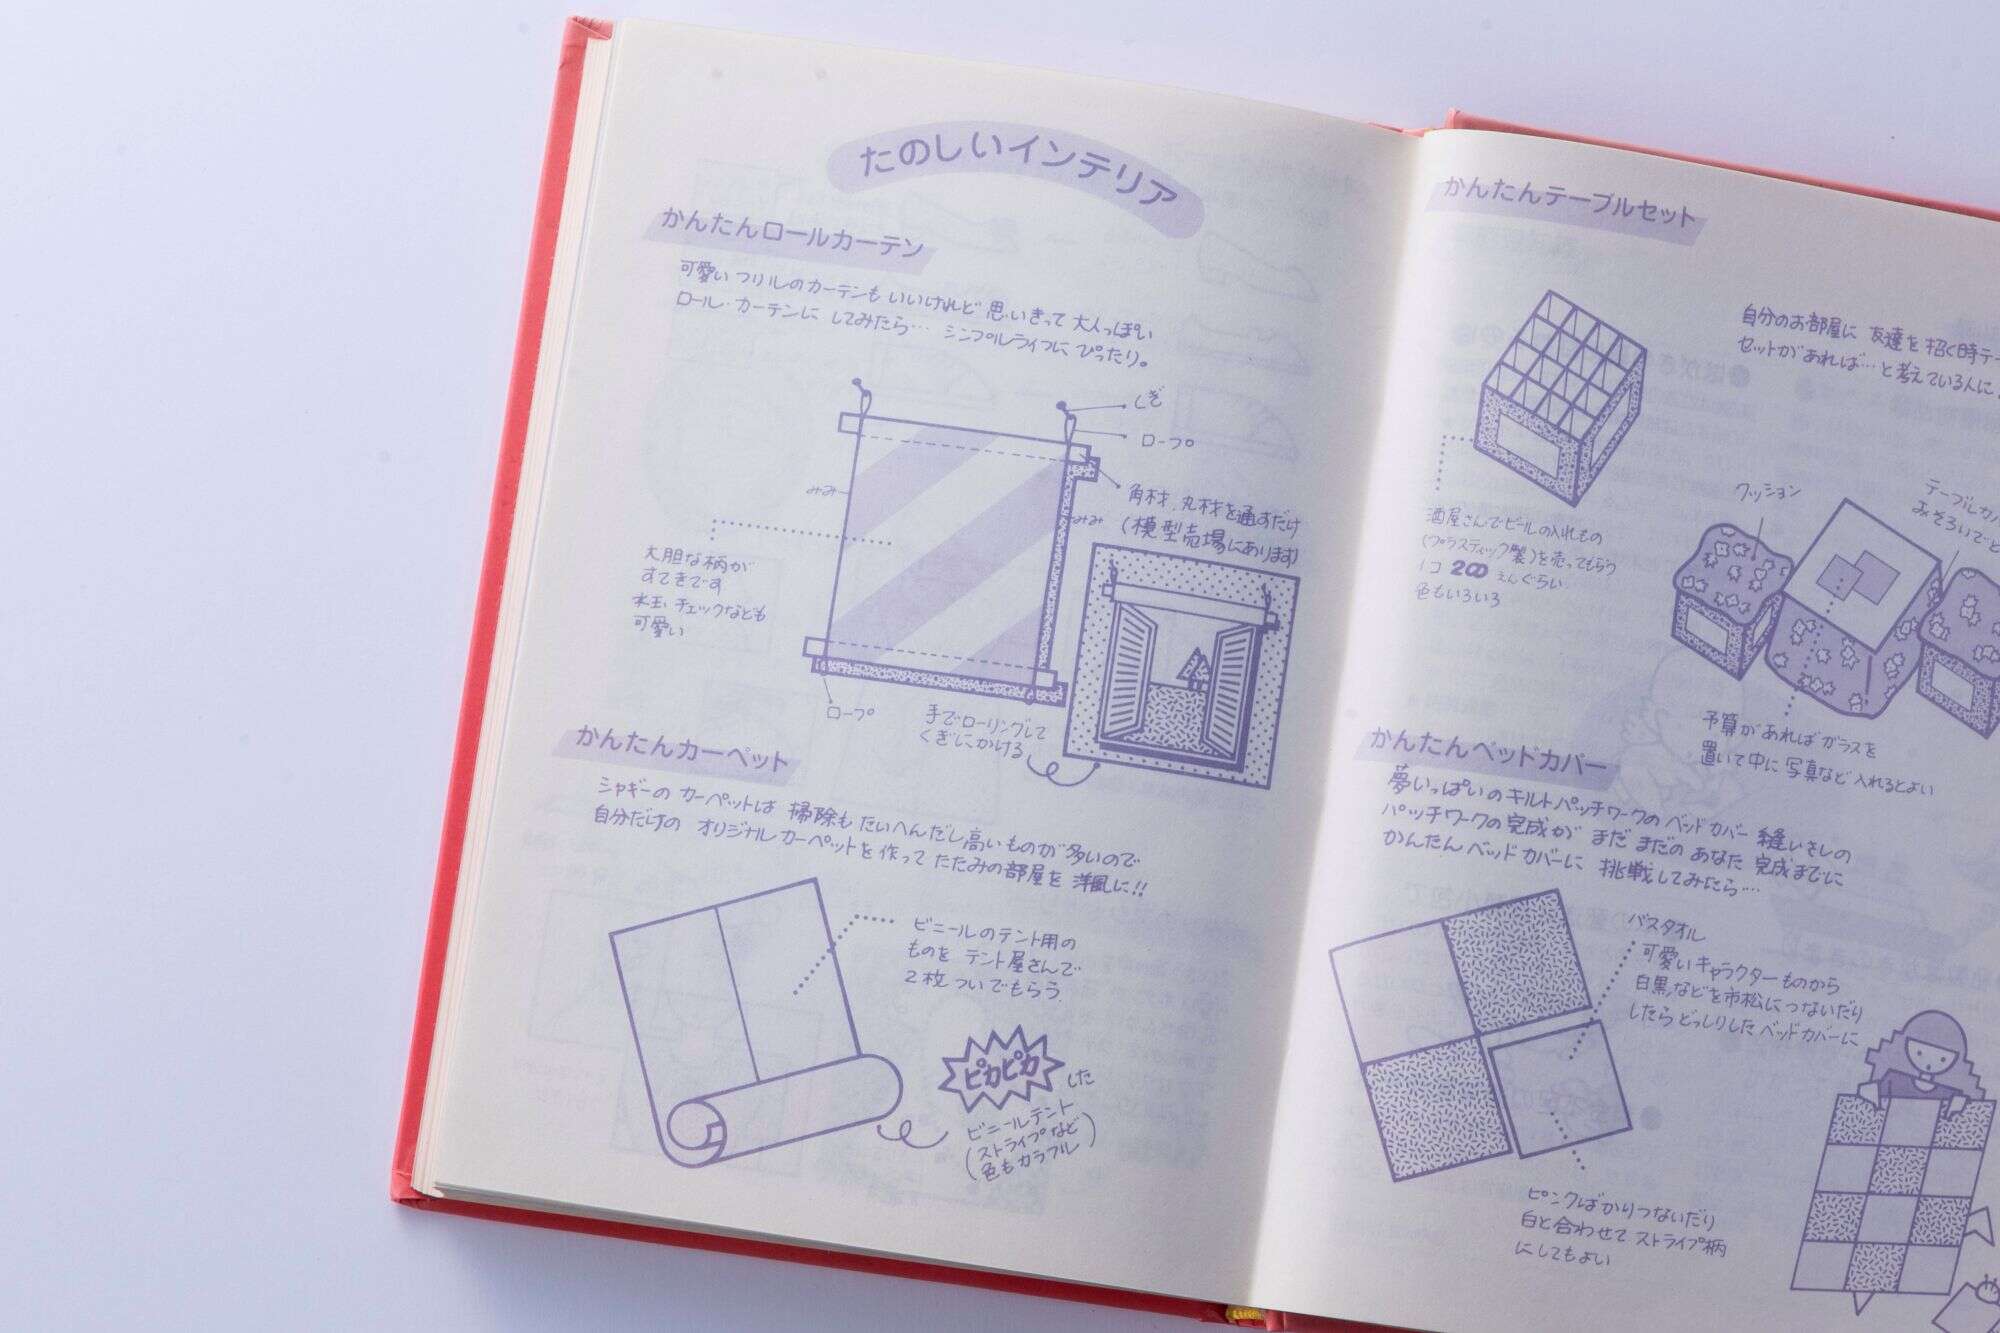 たのしいインテリア
かんたんロールカーテン
可愛いフリルのカーテンも いいけれど 思いきって 大人っぽい
ロール・カーテンに してみたら… シンプルライフに ぴったり。
くぎ
ロープ
みみ
角材、丸材を通すだけ
(模型売場にあります)
みみ
大胆な柄が
すてきです
水玉、チェックなども
可愛い
ロープ
手でローリングして
くぎにかける
かんたんカーペット
シャギーの カーペットは 掃除も たいへんだし高いものが多いので
自分だけの オリジナルカーペットを 作って たたみの部屋を 洋風に!!
ビニールのテント用の
ものを テント屋さんで
2枚 ついでもらう
ピカピカ した
ビニールテント
(ストライプなど
色もカラフル)
かんたんテーブルセット
自分のお部屋に 友達を 招く時テー
セットがあれば…と考えている人に
酒屋さんでビールの入れもの
(プラスティック製)を売ってもらう
1コ 200 えんぐらい
色もいろいろ
クッション
テーブルカバ
みそろいでと
予算があればガラスを
置いて中に写真など入れるとよい
かんたんベッドカバー
夢いっぱいのキルトパッチワークのベッドカバー 縫いさしの
パッチワークの完成が まだ まだの あなた 完成までに
かんたんベッドカバーに 挑戦してみたら…
バスタオル
可愛いキャラクターものから
白黒などを市松につないだり
したらどっしりしたベッドカバーに
ピンクばかりつないだり
白と合わせて ストライプ柄
にしてもよい